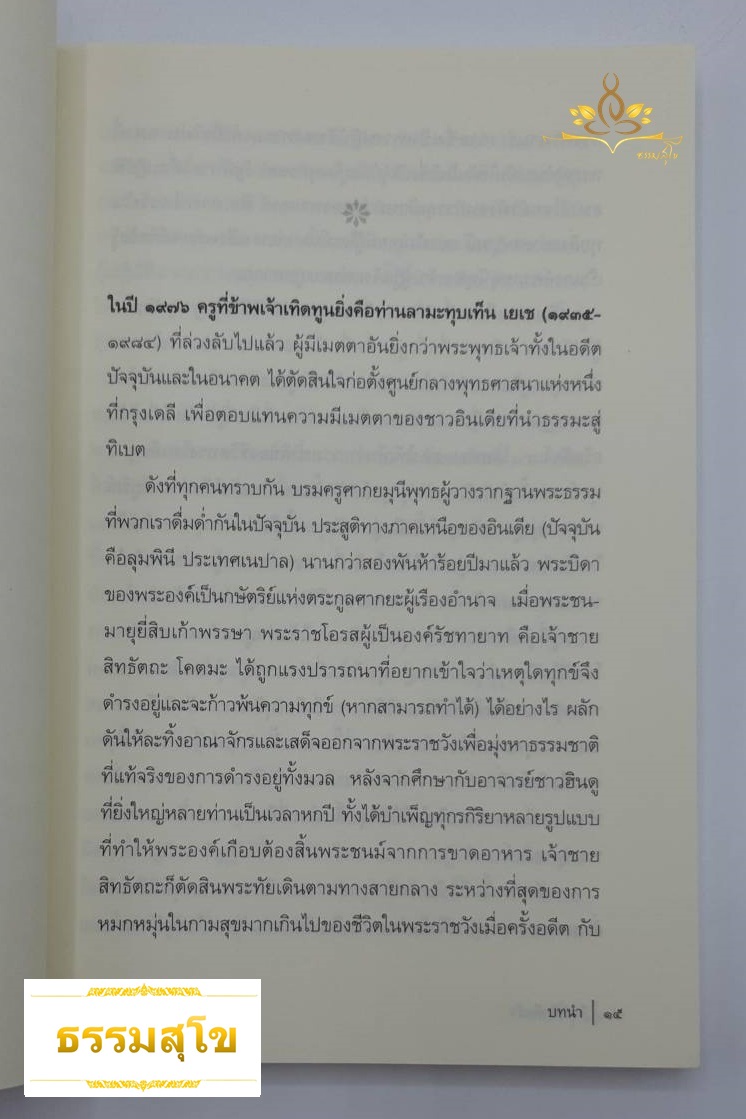 ธรรมสุโข
ในปี ๑๙๗๖ ครูที่ข้าพเจ้าเทิดทูนยิ่งคือท่านลามะทุบเท็น เยเช (๑๙๓๕-
๑๙๘๔) ที่ล่วงลับไปแล้ว ผู้มีเมตตาอันยิ่งกว่าพระพุทธเจ้าทั้งในอดีต
ปัจจุบันและในอนาคต ได้ตัดสินใจก่อตั้งศูนย์กลางพุทธศาสนาแห่งหนึ่ง
ที่กรุงเดลี เพื่อตอบแทนความมีเมตตาของชาวอินเดียที่นำธรรมะสู่
ทิเบต
ดังที่ทุกคนทราบกัน บรมครูศากยมุนีพุทธผู้วางรากฐานพระธรรม
ที่พวกเราดื่มด่ำกันในปัจจุบัน ประสูติทางภาคเหนือของอินเดีย (ปัจจุบัน
คือลุมพินี ประเทศเนปาล) นานกว่าสองพันห้าร้อยปีมาแล้ว พระบิดา
ของพระองค์เป็นกษัตริย์แห่งตระกูลศากยะผู้เรืองอำนาจ เมื่อพระชน-
มายุยี่สิบเก้าพรรษา พระราชโอรสผู้เป็นองค์รัชทายาท คือเจ้าชาย
สิทธัตถะ โคตมะ ได้ถูกแรงปรารถนาที่อยากเข้าใจว่าเหตุใดทุกข์จึง
ดำรงอยู่และจะก้าวพ้นความทุกข์ (หากสามารถทำได้) ได้อย่างไร ผลัก
ดันให้ละทิ้งอาณาจักรและเสด็จออกจากพระราชวังเพื่อมุ่งหาธรรมชาติ
ที่แท้จริงของการดำรงอยู่ทั้งมวล หลังจากศึกษากับอาจารย์ชาวฮินดู
ที่ยิ่งใหญ่หลายท่านเป็นเวลาหกปี ทั้งได้บำเพ็ญทุกรกิริยาหลายรูปแบบ
ที่ทำให้พระองค์เกือบต้องสิ้นพระชนม์จากการขาดอาหาร เจ้าชาย
สิทธัตถะก็ตัดสินพระทัยเดินตามทางสายกลาง ระหว่างที่สุดของการ
หมกหมุ่นในกามสุขมากเกินไปของชีวิตในพระราชวังเมื่อครั้งอดีต กับ
บทนำ | ๑๕
ธรรมสุโข